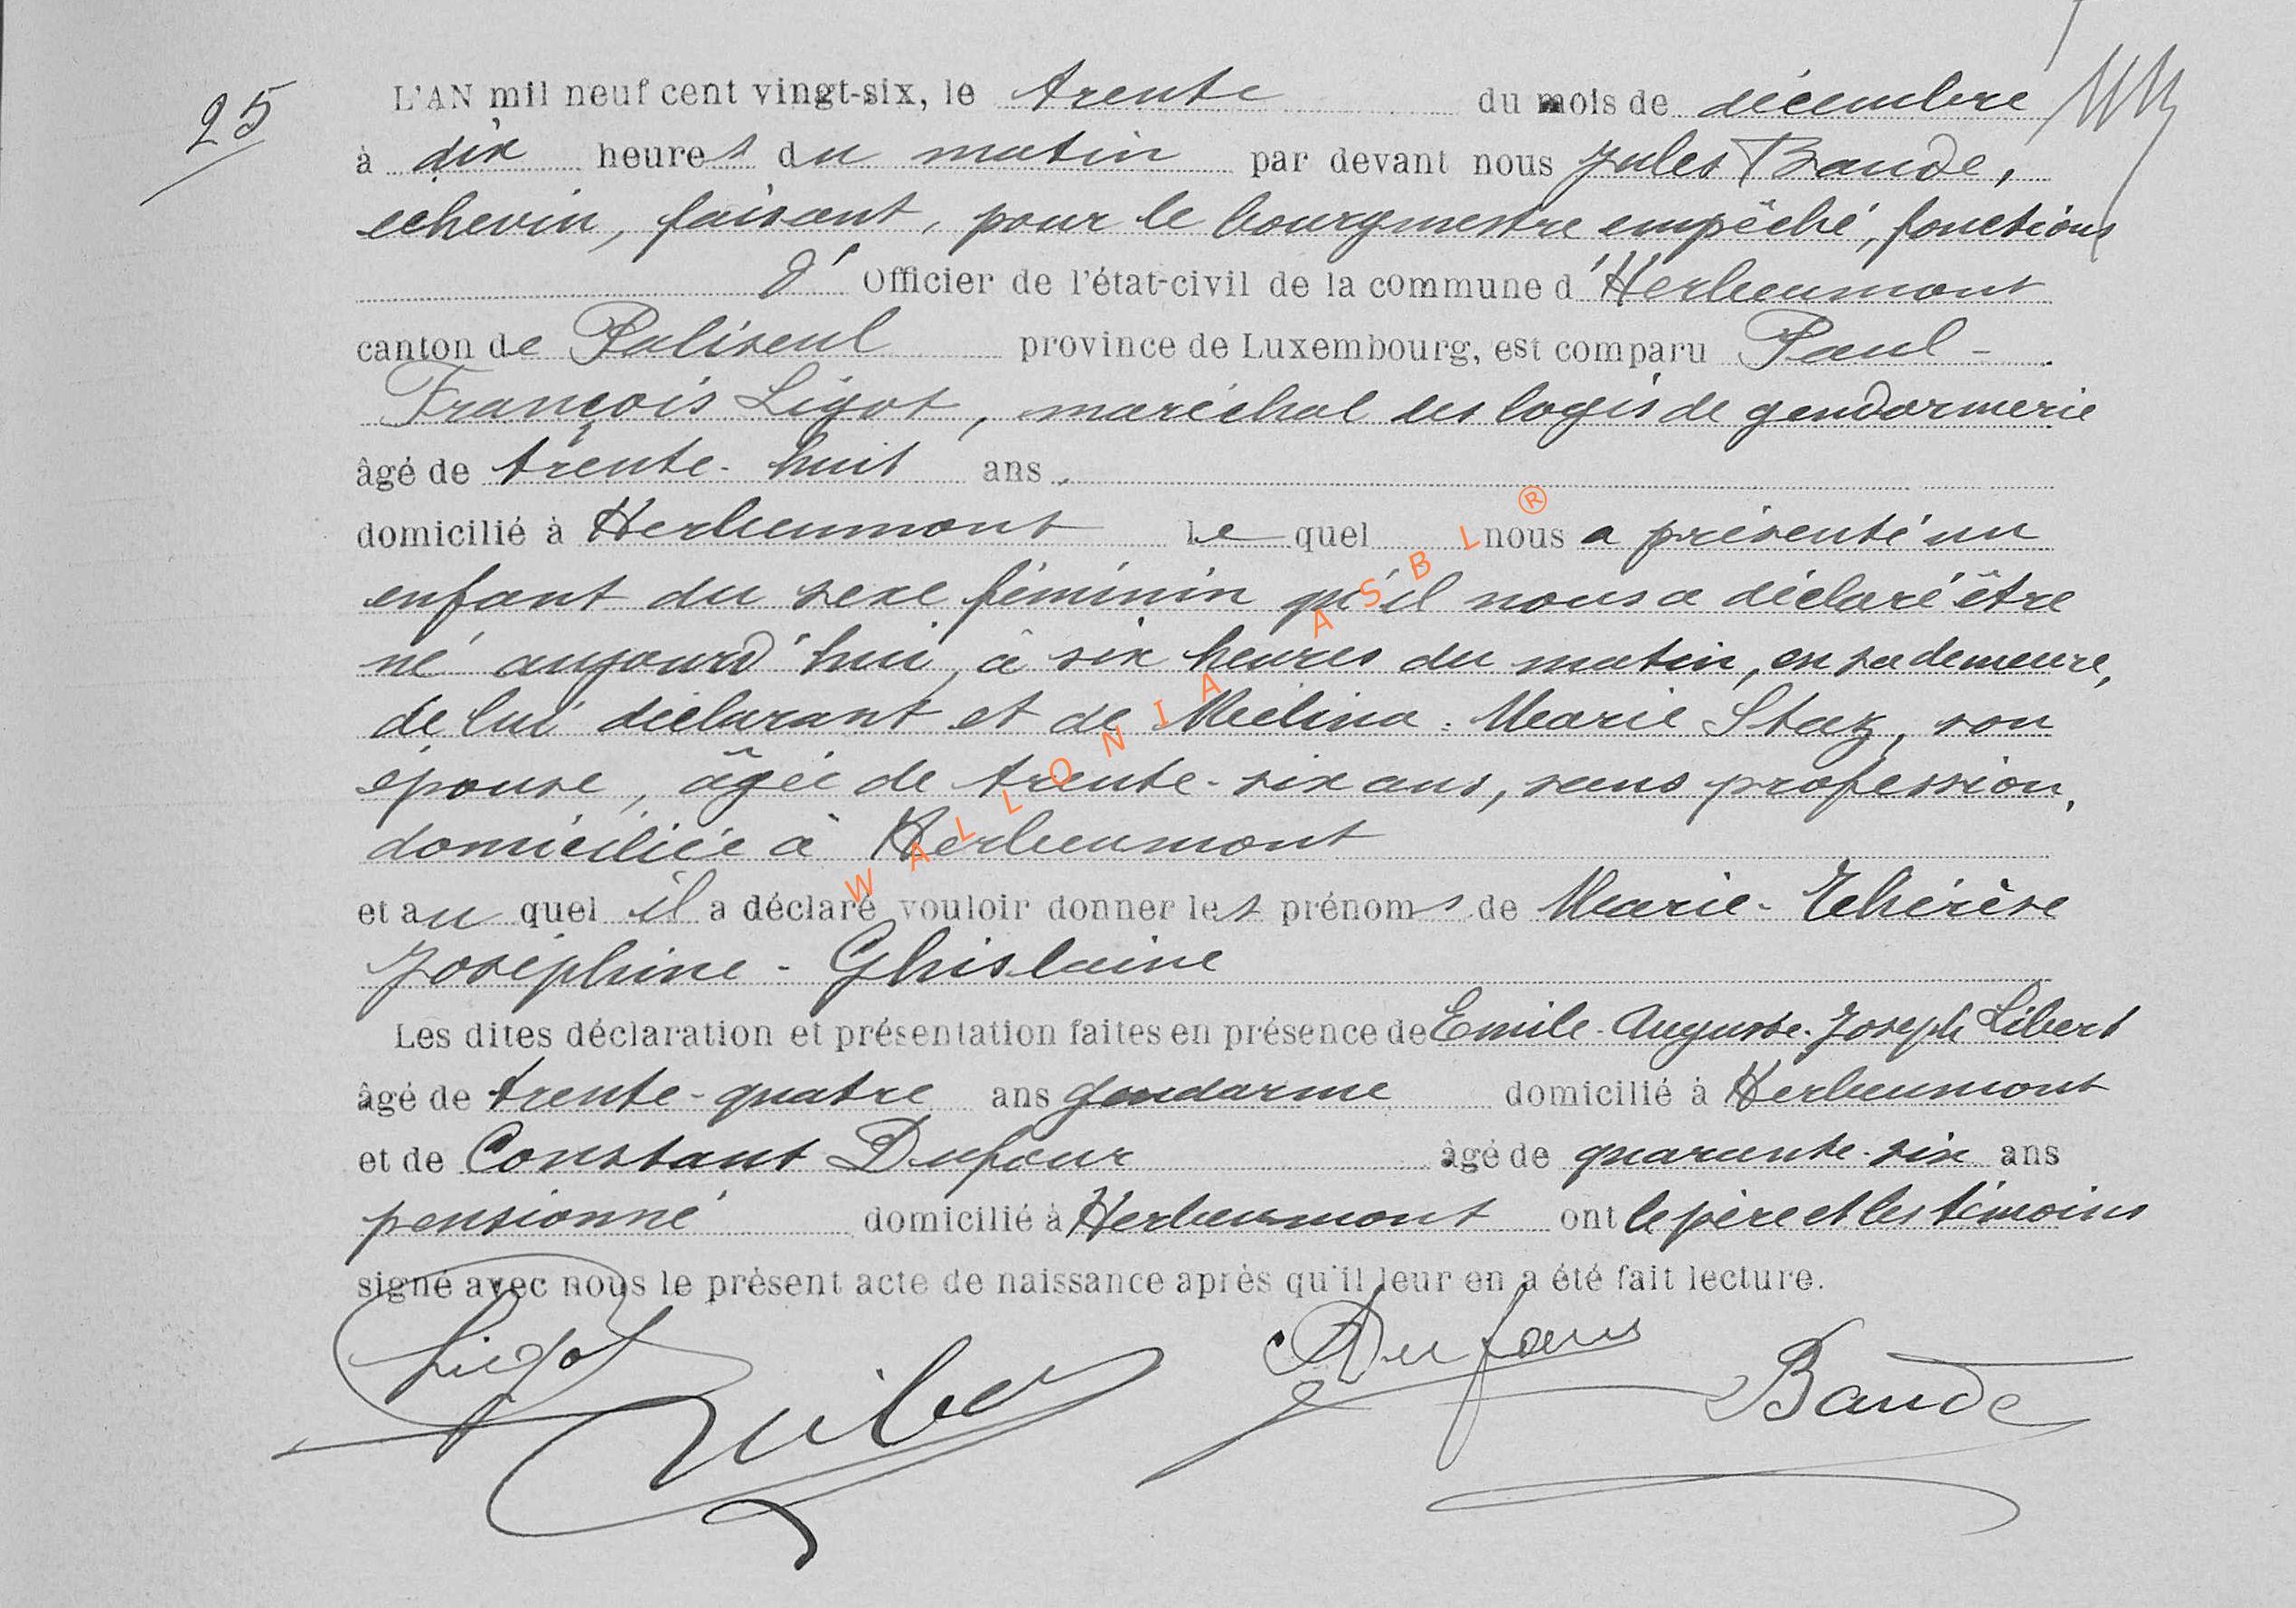 25
L'AN mil neuf cent vingt-six, le trente du mois de décembre
à dix heures du matin par devant nous Jules Baude,
echevin, faisant, pour le bourgmestre empêché, fonctions
d' Officier de l'état-civil de la commune d'Herbeumont
canton de Paliseul province de Luxembourg, est comparu Paul-
François Ligot, maréchal des logis de gendarmerie
âgé de trente-huit ans,
domicilié à Herbeumont Le quel nous a présenté un
enfant du sexe féminin qu'il nous a déclaré être
né aujourd'hui, à six heures du matin, en sa demeure,
de lui déclarant et de Mélina-Marie Staz, son
épouse, âgée de trente-six ans, sans profession,
domiciliée à Herbeumont
et au quel il a déclaré vouloir donner les prénoms de Marie-Thérèse
Joséphine-Ghislaine
Les dites déclaration et présentation faites en présence de Emile-Auguste-Joseph Libert
âgé de trente-quatre ans gendarme domicilié à Herbeumont
et de Constant Dufour âgé de quarante-six ans
pensionné domicilié à Herbeumont ont le père et les témoins
signé avec nous le présent acte de naissance après qu'il leur en a été fait lecture.
Ligot Dufour Baude
WALLONIA ASBL ®